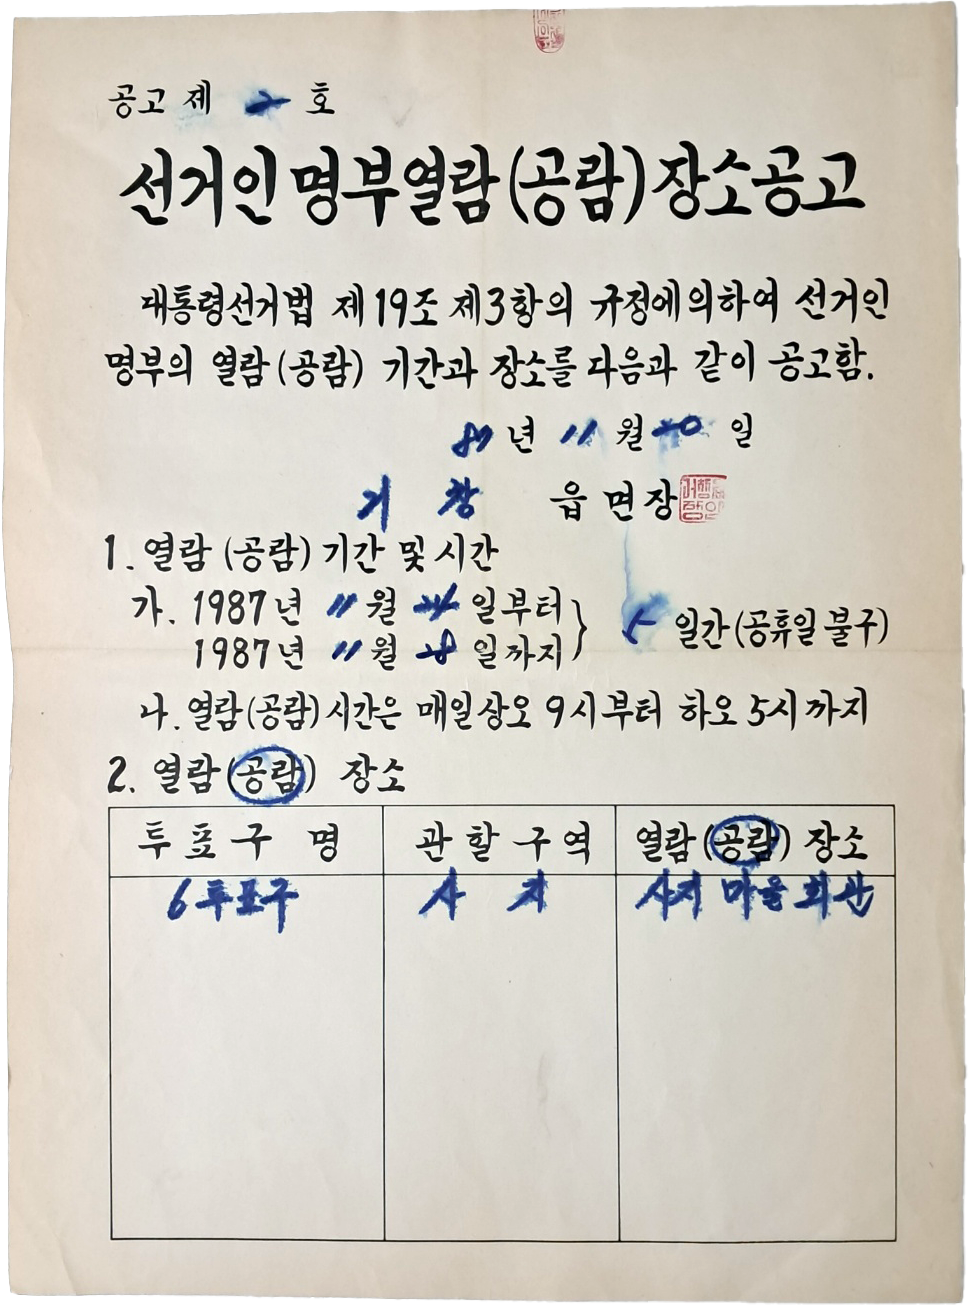 공고 제 2 호
선거인명부열람(공람)장소공고
대통령선거법 제19조 제3항의 규정에의하여 선거인
명부의 열람(공람) 기간과 장소를 다음과 같이 공고함.
87년 11월 20일
거창 읍면장
1. 열람(공람)기간 및 시간
가. 1987년 11월 24일부터
1987년 11월 28일까지 } 5일간(공휴일 불구)
나. 열람(공람)시간은 매일상오 9시부터 하오 5시까지
2. 열람(공람) 장소
투표구 명 관할구역 열람(공람) 장소
6투표구 사지 사지 마을회관